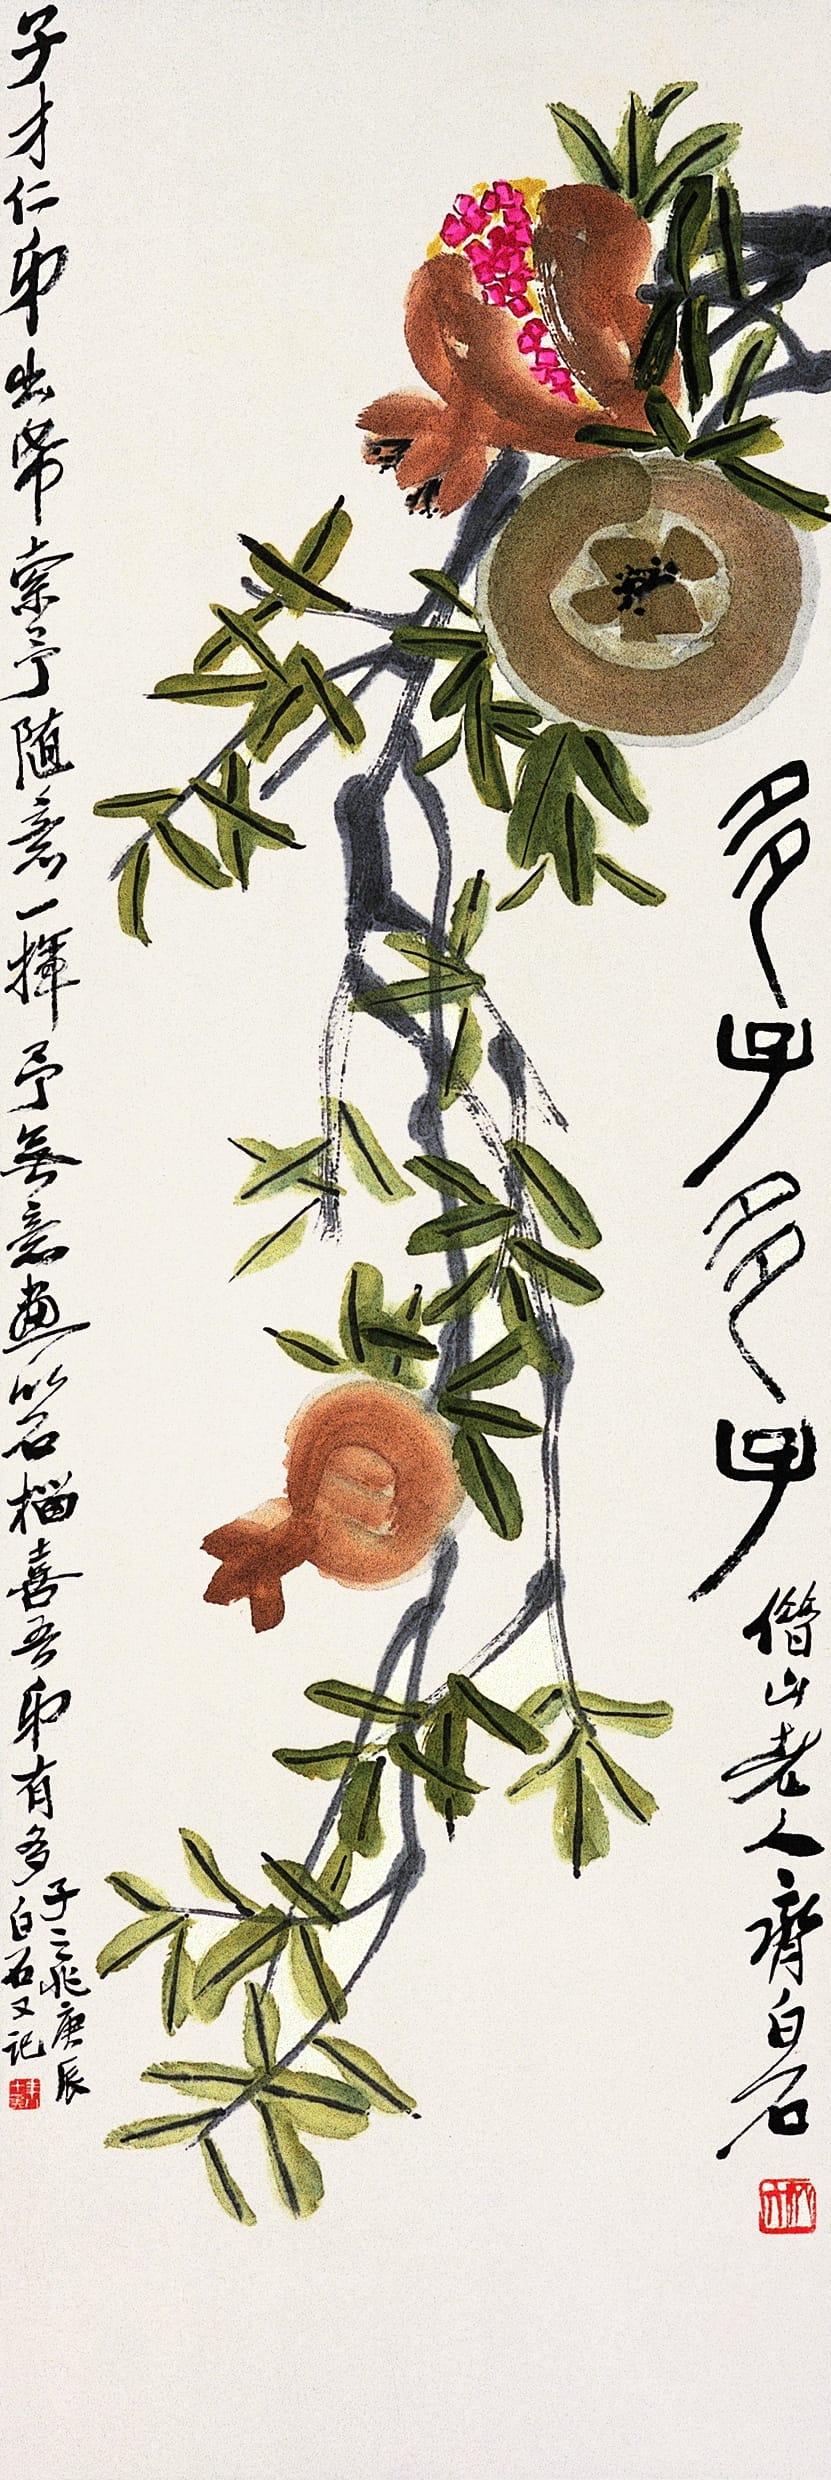 多子多子
借山老人齊白石
子才仁弟出帋索予随意一揮予無意畫此石榴喜吾弟有多
子之兆庚辰
白石又記